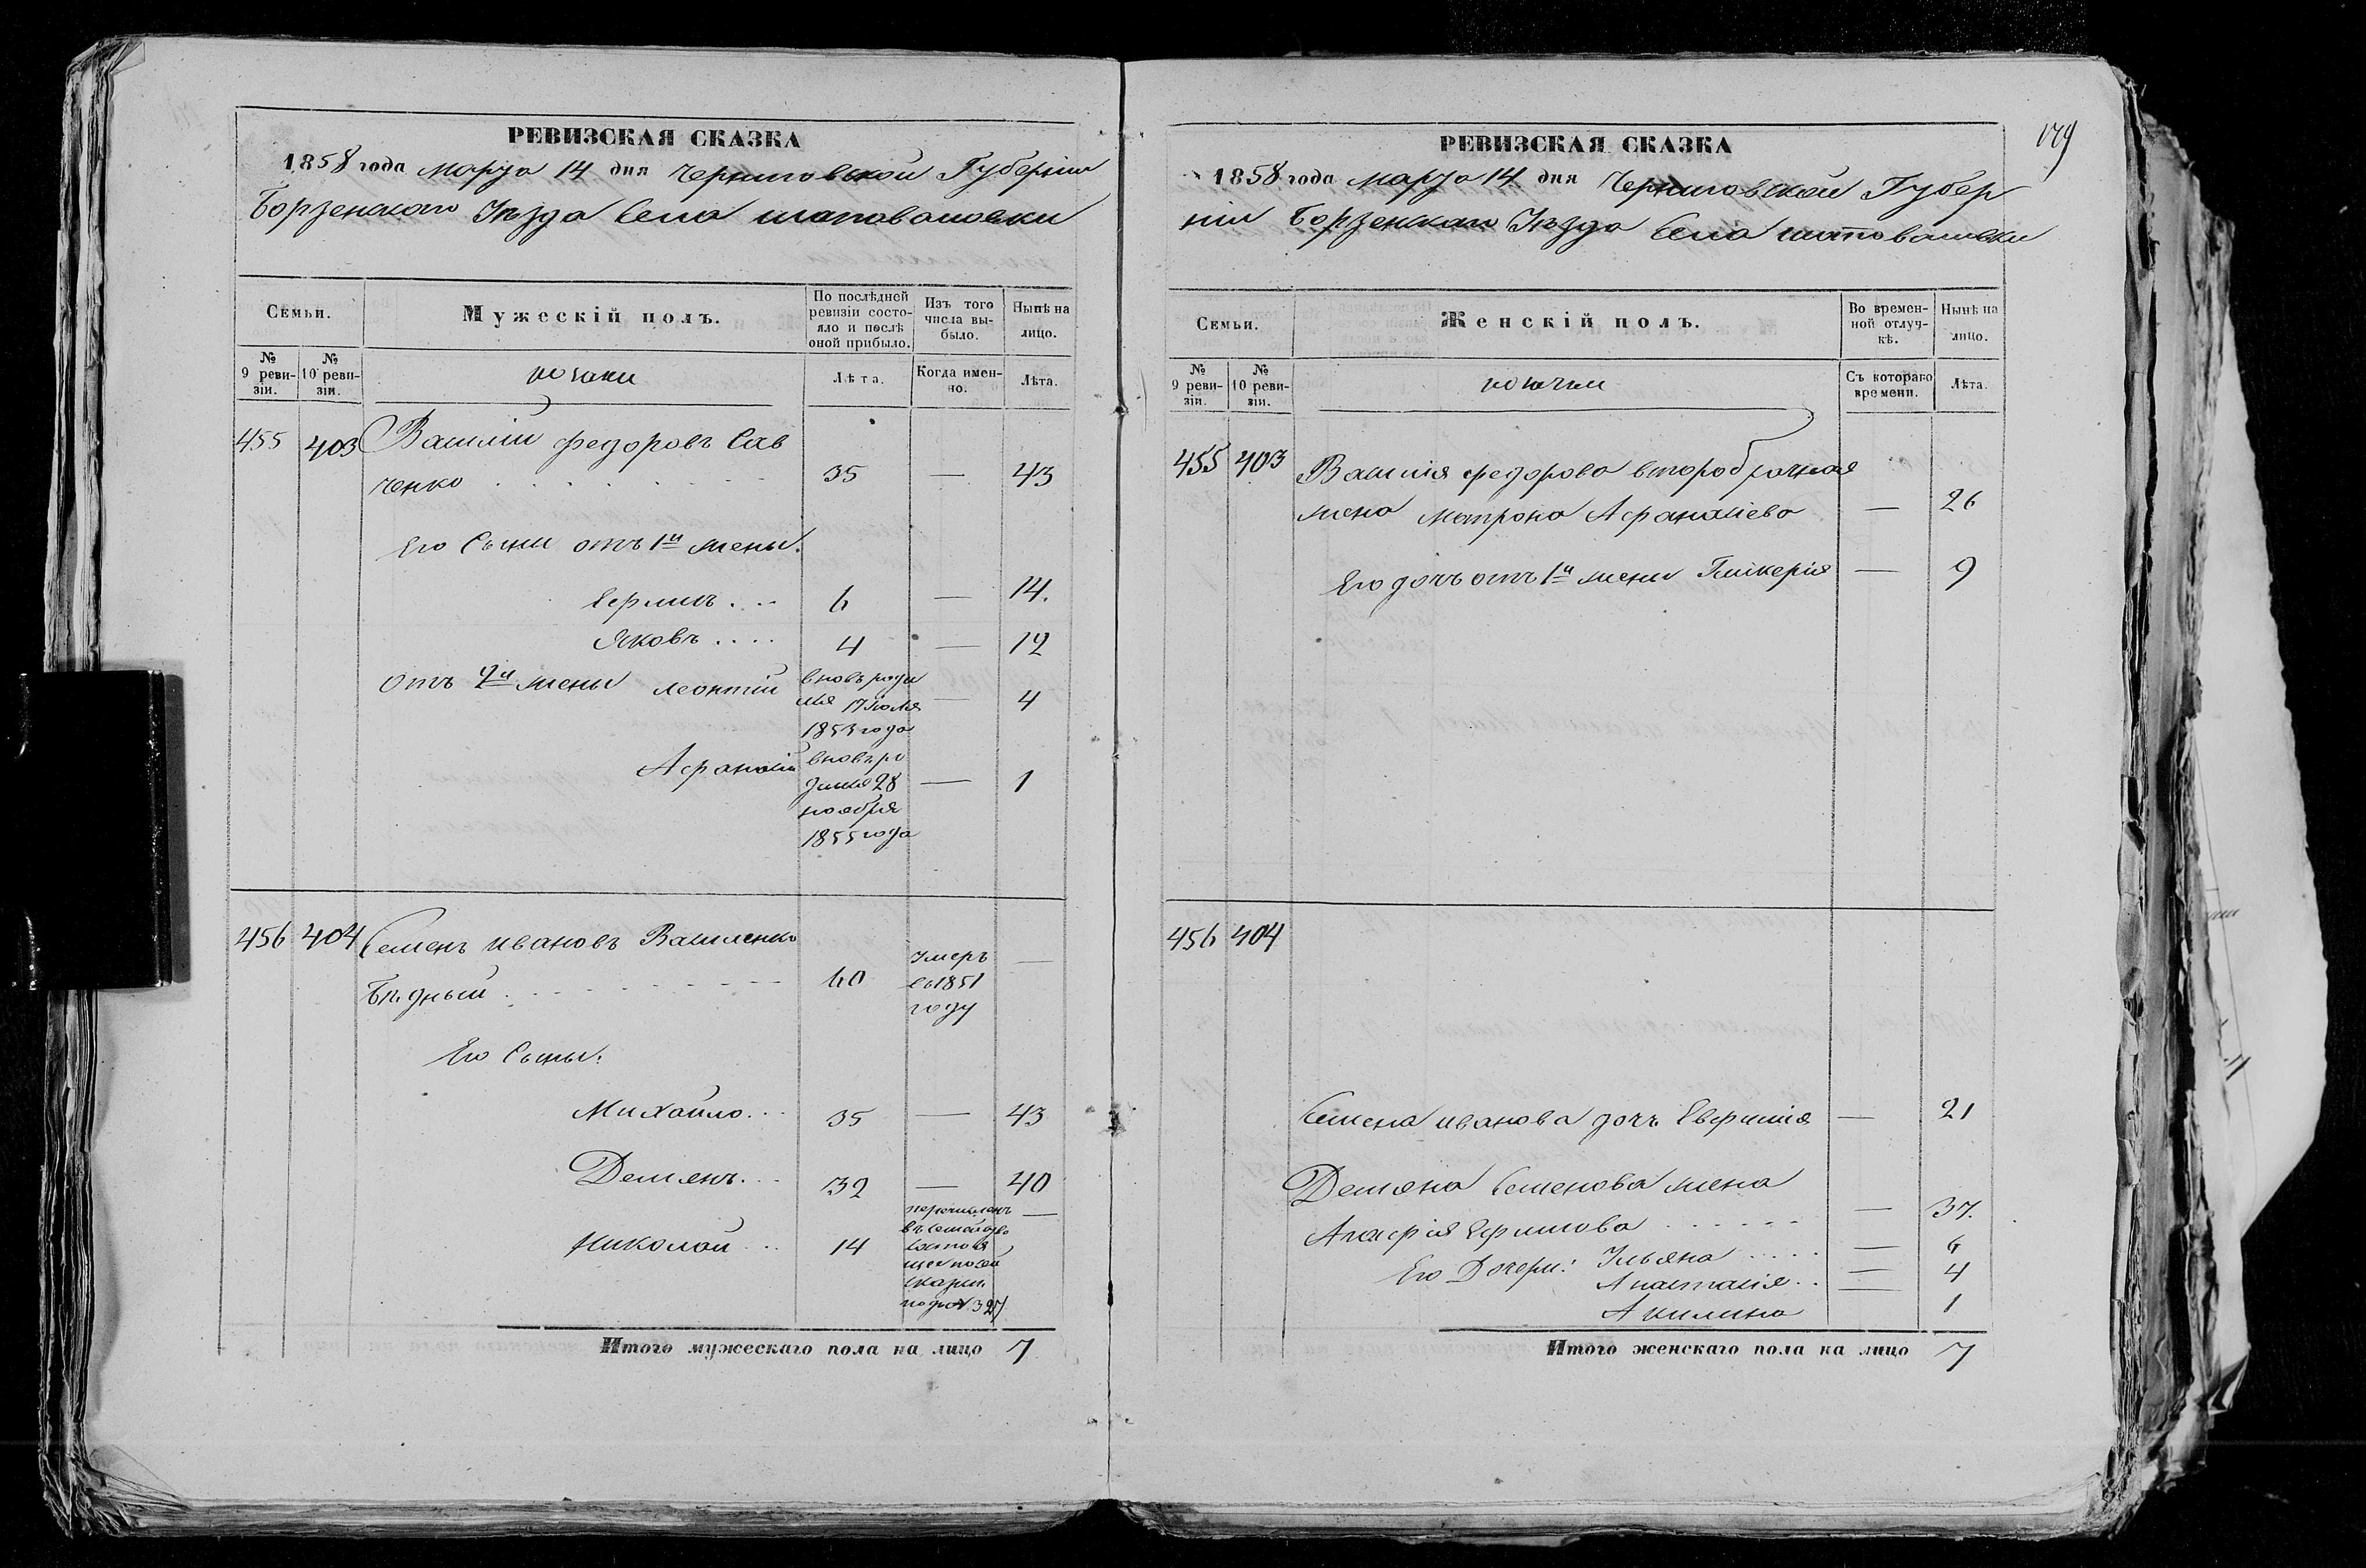 РЕВИЗСКАЯ СКАЗКА
1858 года марта 14 дня Черниговской Губерніи
Борзенскаго Уѣзда Села Шаповаловки
Семьи.
Мужескій полъ.
По послѣдней ревизіи состояло и послѣ оной прибыло.
Изъ того числа выбыло.
Нынѣ на лицо.
№ 9 ревизіи.
№ 10 ревизіи.
козаки
Лѣта.
Когда именно.
Лѣта.
455 403 Василій Федоровъ Сав
ченко 35 — 43
Его Сыни отъ 1й жены:
Ефимъ 6 — 14.
Яковъ 4 — 12
отъ 2й жены Леонтій
вновь роди
лся 17 Іюля
1853 года
— 4
Афанасій
вновь ро
дился 28
ноября
1855 года
— 1
456 404 Семенъ Ивановъ Василенко
Бѣдный 60
умеръ
въ 1851
году
—
Его Сыны:
Михайло 35 — 43
Демянъ 32 — 40
Николай 14
перечисленъ
въ семейство
состоя
щее по сей
сказки
подъ № 327
—
Итого мужескаго пола на лицо 7
179
РЕВИЗСКАЯ СКАЗКА
1858 года марта 14 дня Черниговской Губер
ніи Борзенскаго Уѣзда Села Шаповаловки
Семьи.
Женскій полъ.
Во временной отлучкѣ.
Нынѣ на лицо.
№ 9 ревизіи.
№ 10 ревизіи.
козачки
Съ котораго времени.
Лѣта.
455 403 Василія Федорова второбрачная
жена Матрона Афанасіева — 26
Его дочь отъ 1й жены Гликерія — 9
456 404
Семена Иванова дочь Евфимія — 21
Демяна Семенова жена
Агафія Ефимова — 37.
Его Дочери: Ульяна — 6
Анастасія — 4
Акилина — 1
Итого женскаго пола на лицо 7